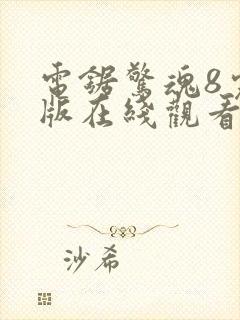 電鋸驚魂8
版在綫觀看
沙希